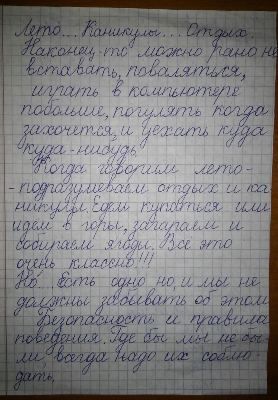 Лето... Каникулы... Отдых.
Наконец-то можно рано не
вставать, поваляться,
играть в компьютере
побольше, погулять когда
захочется, и уехать куда
куда-нибудь.
Когда говорим лето-
-подразумеваем отдых и ка
никулы. Едем купаться или
идем в горы, загараем и
собираем ягоды. Все это
очень классно!!!
Но... Есть одно но, и мы не
должны забывать об этом.
Безопасность и правила
поведения. Где бы мы не бы-
ли всегда надо их соблю-
дать.